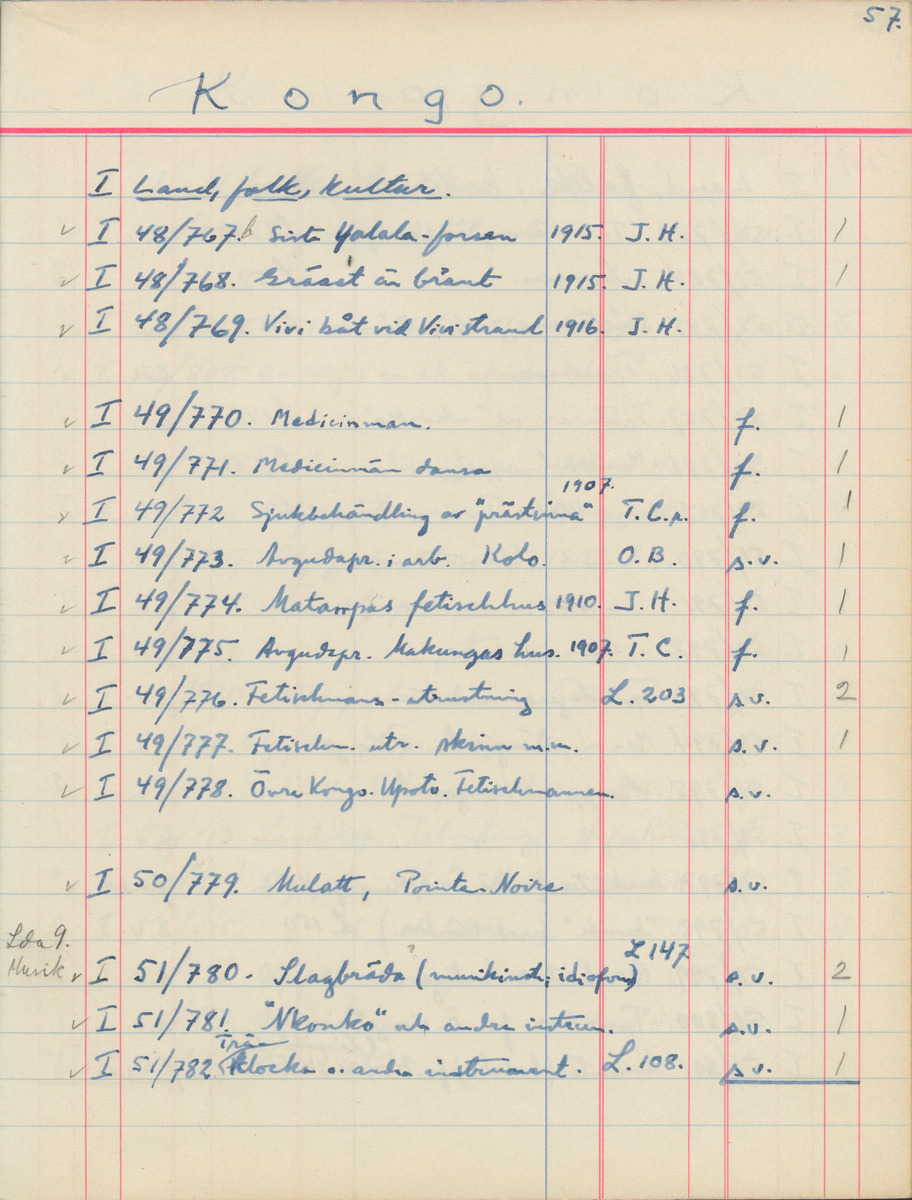 57.
Kongo.
I Land, folk, kultur.
✓ I 48/767. b Sista Yalala-forsen 1915. J. H. 1
✓ I 48/768. Gräset än bränt 1915. J. H. 1
✓ I 48/769. Vivi båt vid Vivistrand 1916. J. H.
✓ I 49/770. Medicinman. f. 1
✓ I 49/771. Medicinmän dansa f. 1
1907.
✓ I 49/772 Sjukbehandling av "prästinna" T. C. f. 1
✓ I 49/773. Avgudapr. i arb. Kolo. O. B. s.v. 1
✓ I 49/774. Matampas fetischhus 1910. J. H. f. 1
✓ I 49/775. Avgudapr. Makungas hus. 1907. T. C. f. 1
✓ I 49/776. Fetischmans-utrustning L. 203 s.v. 2
✓ I 49/777. Fetischm. utr. skinn m.m. s.v. 1
✓ I 49/778. Övre Kongo. Upoto. Fetischmannen. s.v.
✓ I 50/779. Mulatt, Pointe-Noire s.v.
Lda 9.
L 147
Musik ✓ I 51/780. Slagbräda (musikinstr; idiofon) s.v. 2
✓ I 51/781. "Nkonko" och andra instrum. s.v. 1
Trä
✓ I 51/782 klocka o. andra instrument. L. 108. s.v. 1